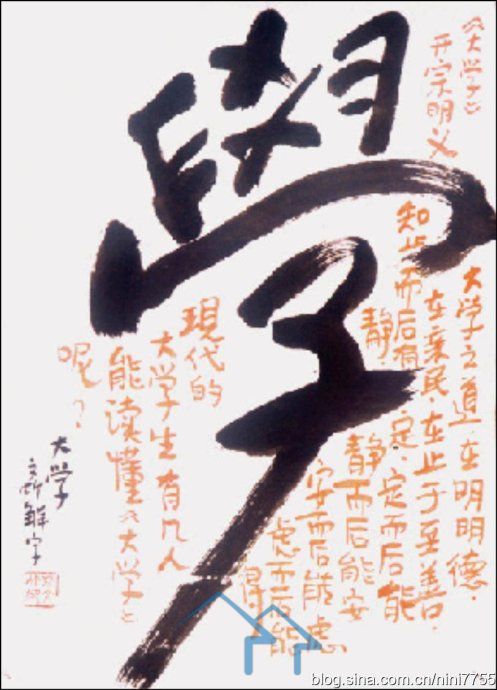 學
《大学》
开宗明义
大学之道在明明德.
在亲民.在止于至善.
知止而后有定.定而后能
静.
静而后能安
安而后能虑
虑而后能
得.
現代的
大学生有几人
能读懂《大学》
呢？
大学
解字
blog.sina.com.cn/nini7755